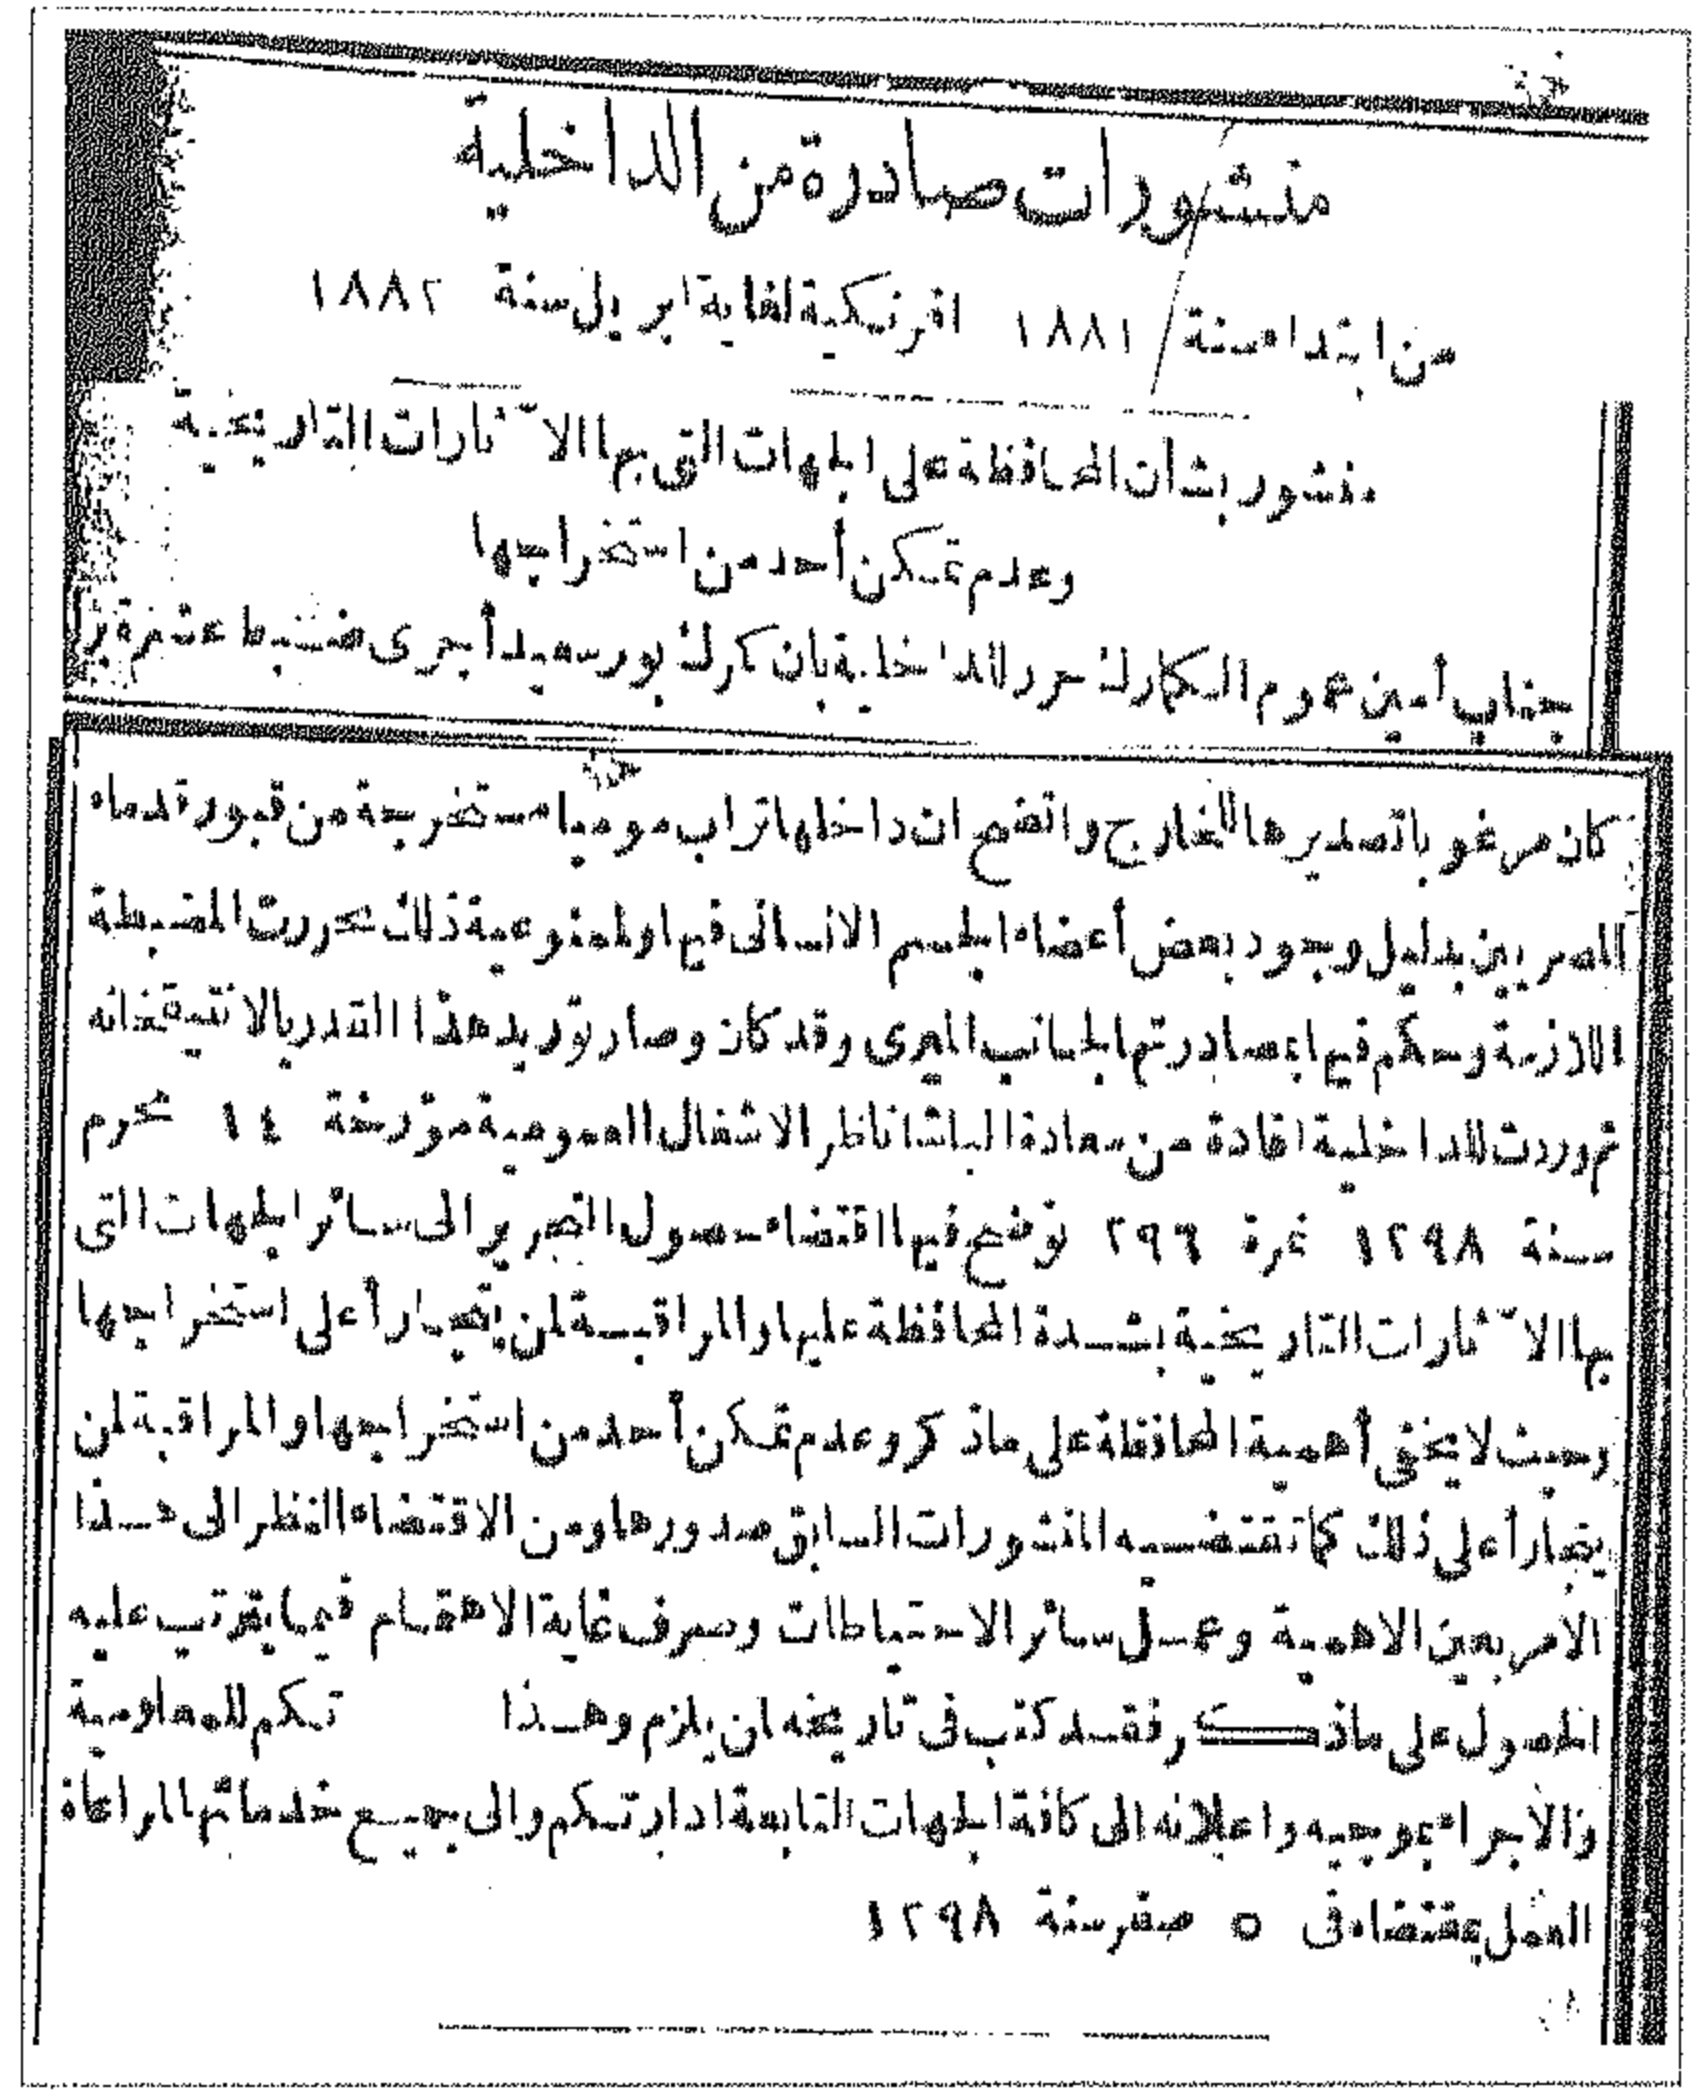 منشورات صادرة من الداخلية
من ابتداء سنة ١٨٨١ افرنكية لغاية ابريل سنة ١٨٨٢
منشور بشأن المحافظة على الجهات التى بها الآثارات التاريخية
وعدم تمكن أحد من استخراجها
جناب أمين عموم الكمارك حرر للداخلية بان كمرك بورسعيد أجرى ضبط عشرة
كان مرغوبا تصديرها للخارج واتضح ان داخلها تراب موميا مستخرجة من قبور قدماء
المصريين بدليل وجود بعض أعضاء الجسم الانسانى فيها ولممنوعية ذلك تحررت المضبطة
اللازمة وحكم فيها بمصادرتها لجانب الميرى وقد كان وصار توريد هذا القدر بالانتيقخانه
ثم وردت للداخلية افادة من سعادة الباشا ناظر الاشغال العمومية مؤرخة ١٤ محرم
سنة ١٢٩٨ نمرة ٢٩٦ توضح فيها اقتضاء حصول التحرير الى سائر الجهات التى
بها الآثارات التاريخية بشدة المحافظة عليها والمراقبة لمن يتجارأ على استخراجها
وحيث لا يخفى أهمية المحافظة على ما ذكر وعدم تمكن أحد من استخراجها والمراقبة لمن
يتجارأ على ذلك كما تقتضيه المنشورات السابق صدورها ومن الاقتضاء النظر الى هذا
الأمر بعين الاهمية وعمل سائر الاحتياطات وصرف غاية الاهتمام فيما يترتب عليه
الحصول على ما ذكر فقد كتب فى تاريخه لمن يلزم وهذا تكم للمعلومية
والأجراء بموجبه واعلانه الى كافة الجهات التابعة ادارتكم والى جميع خدماتها لمراعاة
العمل بمقتضاه فى ٥ صفر سنة ١٢٩٨